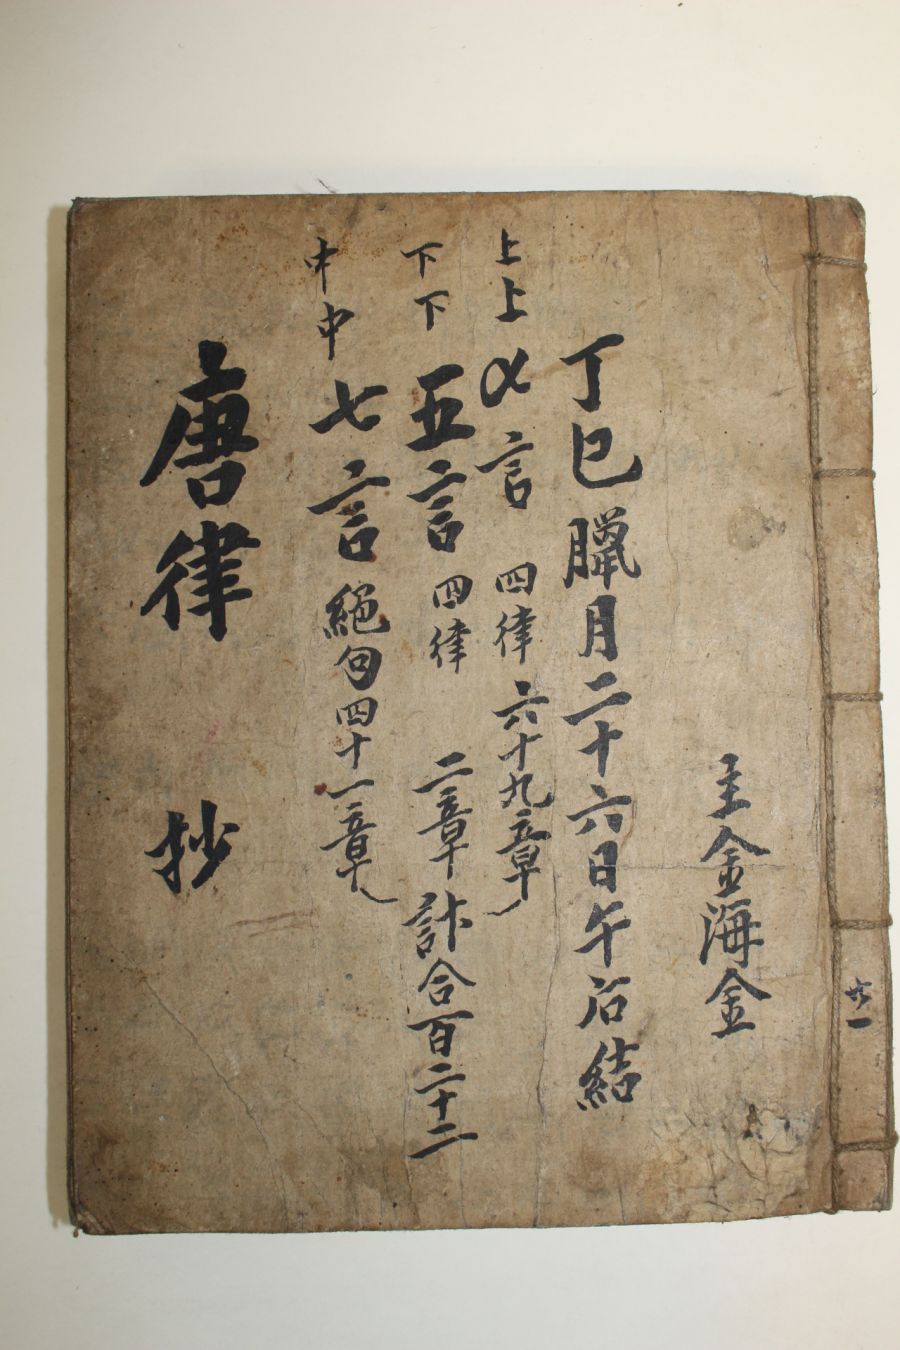 共一
主金海金
丁巳臘月二十六日午后結
上上七言四律六十九章
下下五言四律二章計合百二十二
中中七言絕句四十一章
唐律抄